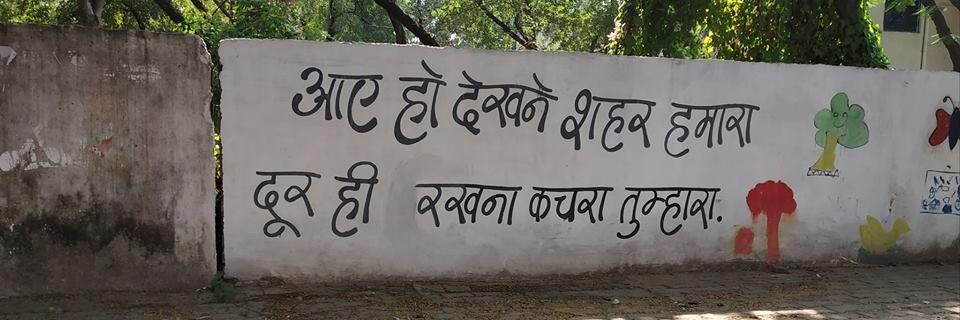 आए हो देखने शहर हमारा
दूर ही रखना कचरा तुम्हारा.